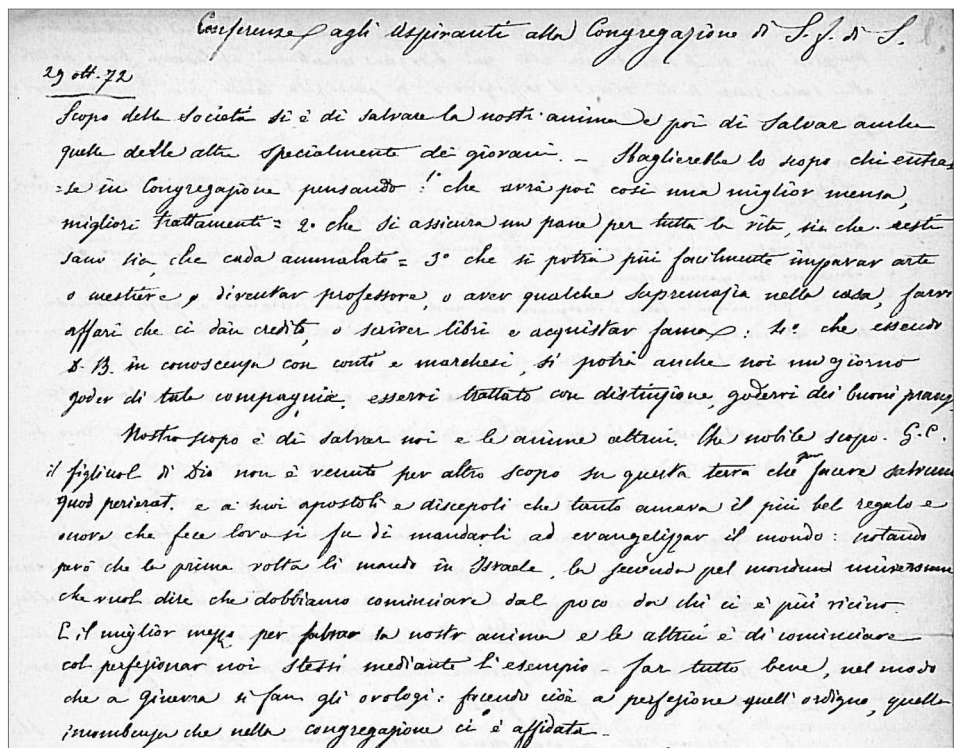 Conferenze agli Aspiranti alla Congregazione di S. f. di S.
29 ott. 72
Scopo della Società si è di salvare la nostr'anima e poi di salvar anche
quelle delle altri specialmente dei giovani. - Sbaglierebbe lo scopo chi entras-
=se in Congregazione pensando 1° che avrà poi così una miglior mensa,
migliori trattamenti = 2° che si assicura un pane per tutta la vita, sia che resti
sano sia che cada ammalato = 3° che si potrà più facilmente imparar arte
o mestiere, o diventar professore, o aver qualche supremazia nella casa, farvi
affari che ci dan credito, o scriver libri e acquistar fama: 4° che essendo
D. B. in conoscenza con conti e marchesi, si potrà anche noi un giorno
goder di tale compagnia, esservi trattato con distinzione, godervi dei buoni pranz.
Nostro scopo è di salvar noi e le anime altrui. Che nobile scopo. G. C.
il figliuol di Dio non è venuto per altro scopo su questa terra che per facere salvum
quod perierat. e a suoi apostoli e discepoli che tanto amava il più bel regalo e
onore che fece loro si fu di mandarli ad evangelizzar il mondo: notando
però che la prima volta li mandò in Israele, la seconda pel mondum universum
che vuol dire che dobbiamo cominciare dal poco da chi ci è più vicino
E il miglior mezzo per salvar la nostr anima e le altrui è di cominciare
col perfezionar noi stessi mediante l'esempio - far tutto bene, nel modo
che a Ginevra si fan gli orologi: facendo cioè a perfezione quell'ordigno, quella
incombenza che nella congregazione ci è affidata.